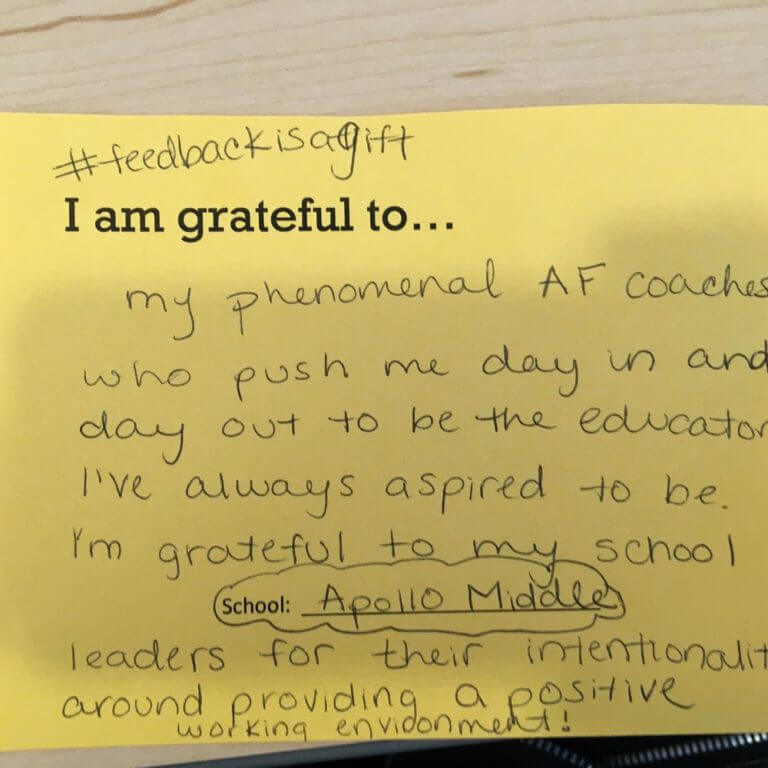 #feedbackisagift
I am grateful to...
my phenomenal AF coaches
who push me day in and
day out to be the educator
I've always aspired to be.
I'm grateful to my school
School: Apollo Middle
leaders for their intentionalit
around providing a positive
working envidonment!